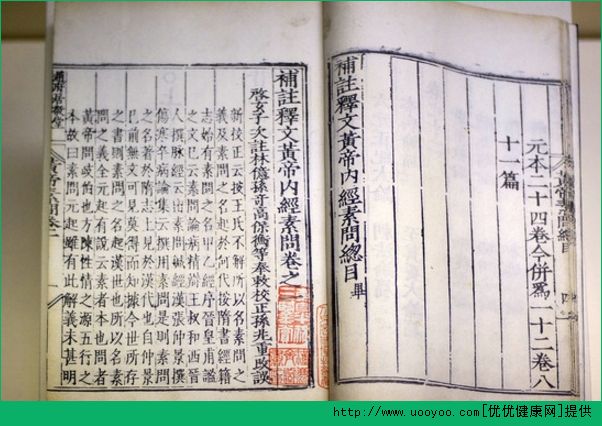 元本二十四卷今併爲一十二卷八
十一篇
補註釋文黃帝內經素問總目畢
補註釋文黃帝內經素問卷之
啓玄子次註林億孫奇高保衡等奉敕校正孫兆重改誤
新校正云按王氏不解所以名素問之
義及素問之名起於何代按隋書經籍
志始有素問之名甲乙經序晉皇甫謐
之文已云素問論病精辨王叔和西晉
人撰脈經云出素問鍼經漢張仲景撰
傷寒卒病論集云撰用素問是則素問
之名著於隋志上見於漢代也自仲景
已前無文可見莫得而知據今世所存
之書則素問之名起漢世也所以名素
問之義全元起有說云素者本也問者
黃帝問岐伯也方陳性情之源五行之
本故曰素問元起雖有此解義未甚明
http://www.uooyoo.com[优优健康网]提供